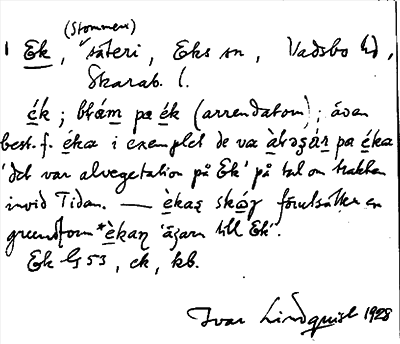 (Stommen)
1 Ek, säteri, Eks sn, Vadsbo hd,
Skarab. l.
ék; bŕám pa ék (arrendatorn); även
best. f. éka i exemplet de va àlvəgár pa éka
'det var alvegetation på Ek' på tal om trakten
invid Tidan. — èkaʂ skóg förutsätter en
grundform *èkaɳ 'ägaren till Ek'.
Ek G 53, ek, kb.
Ivar Lindquist 1928